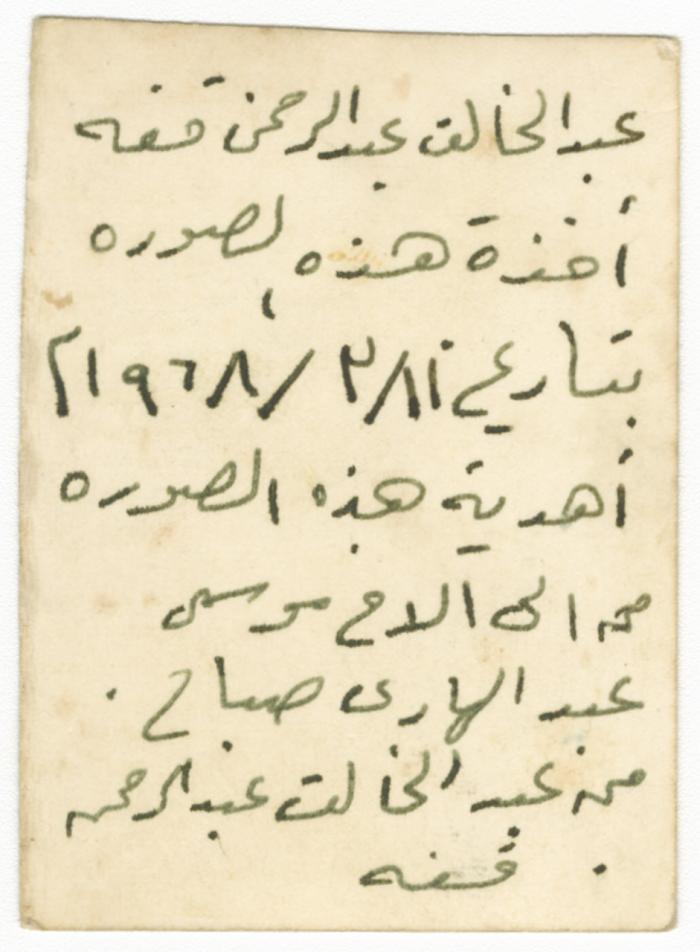 عبد الخالق عبد الرحمن قفه
أخذة هذه لصوره
بتاريخ ٣/٨١ /١٩٦٨م
أهدية هذه الصوره
من الى الاخ موسى
عبد الهادى صباح .
من عبد الخالق عبد الرحمن
قفه